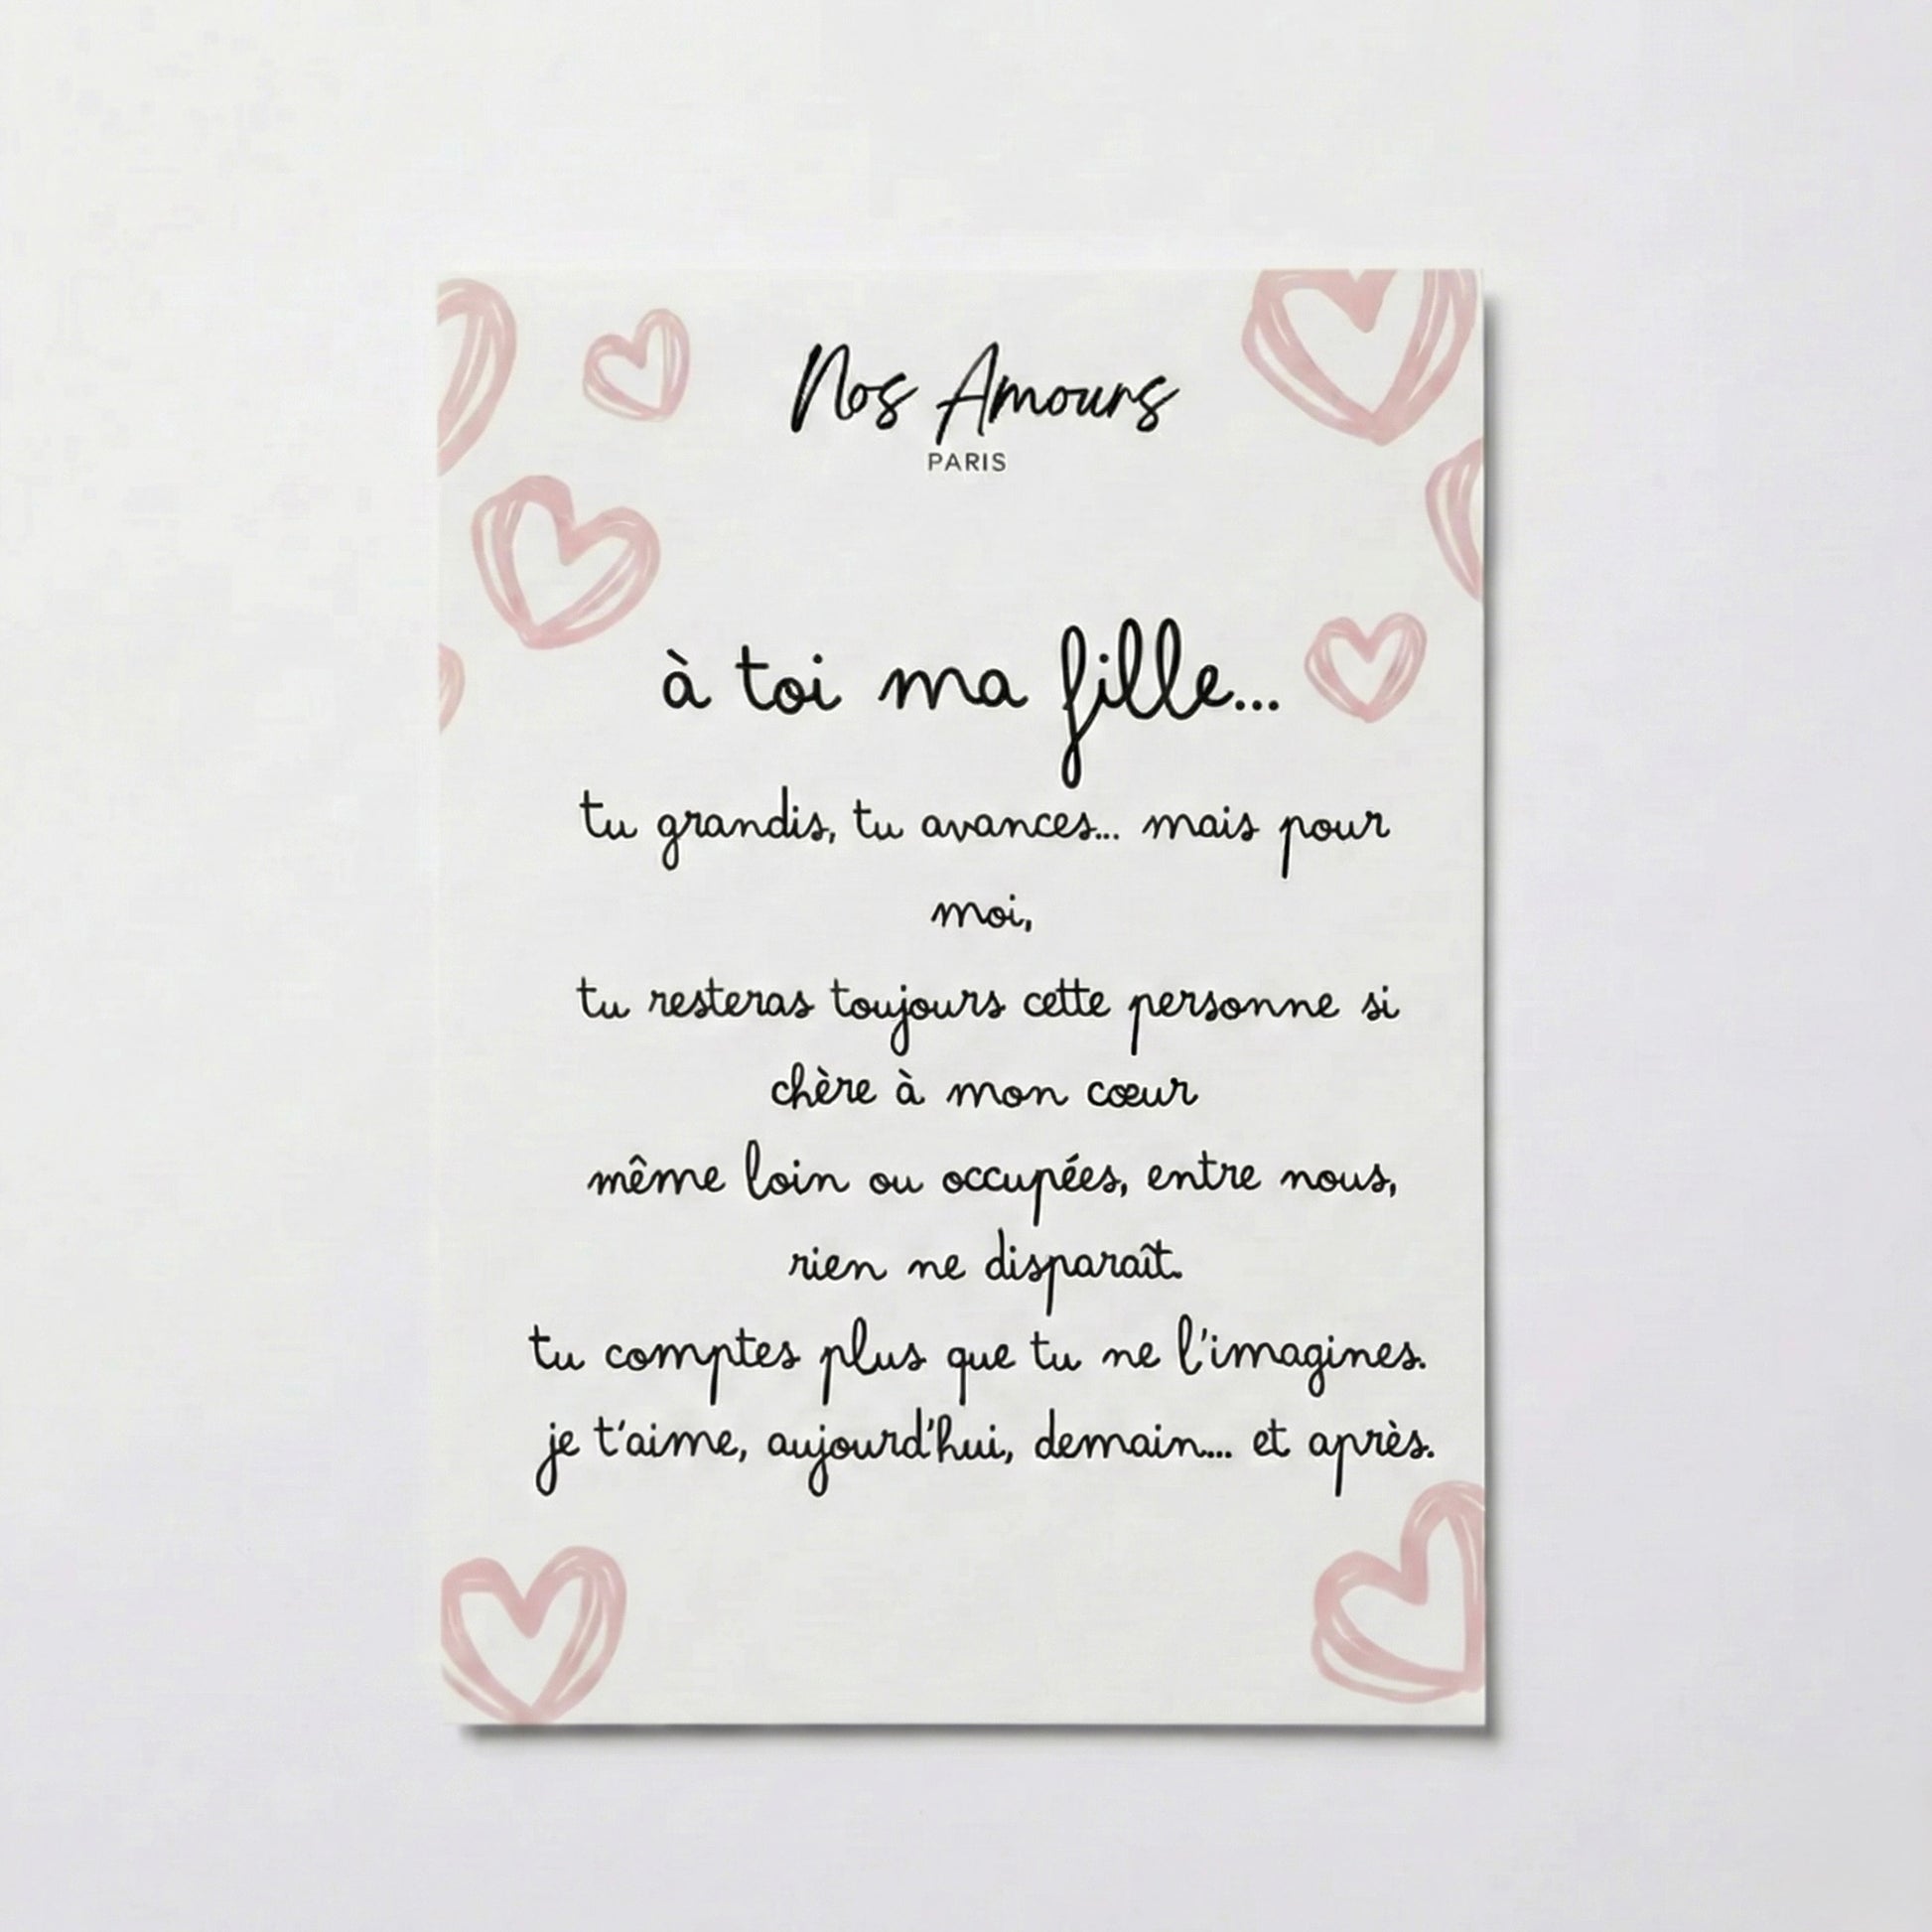 Nos Amours
PARIS
à toi ma fille...
tu grandis, tu avances... mais pour
moi,
tu resteras toujours cette personne si
chère à mon cœur
même loin ou occupées, entre nous,
rien ne disparaît.
tu comptes plus que tu ne l'imagines.
je t'aime, aujourd'hui, demain... et après.